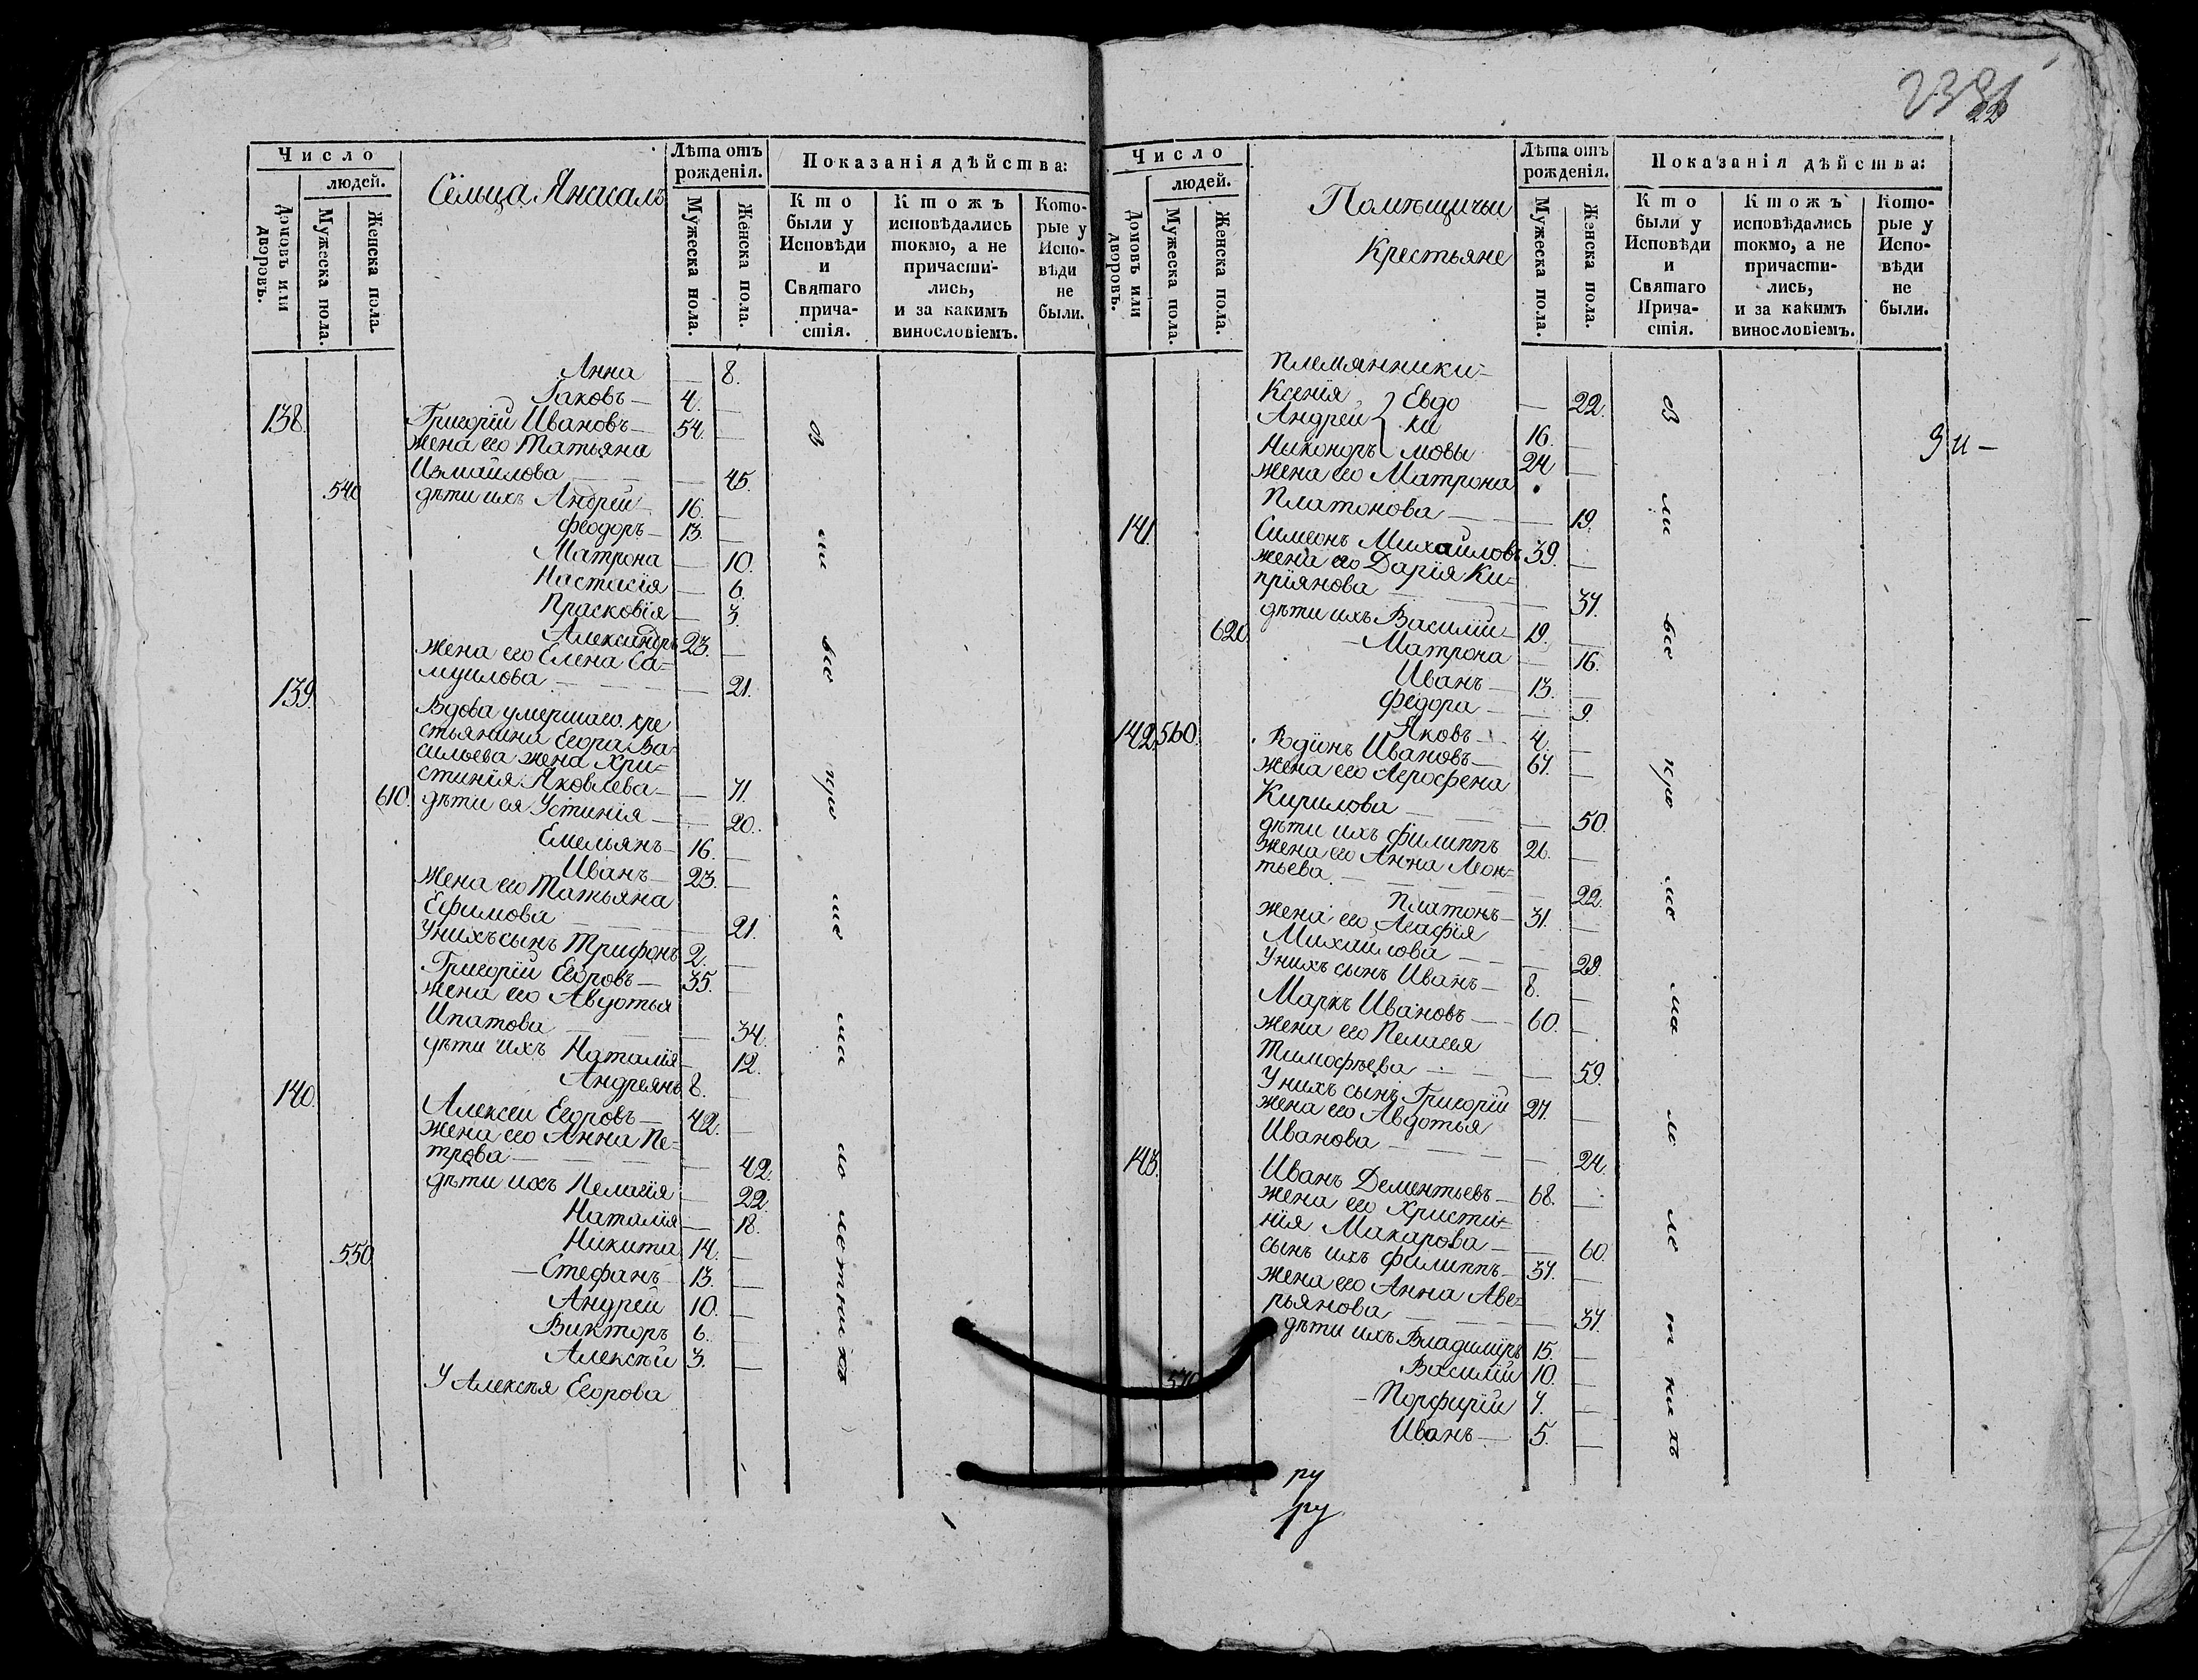 22
Число
людей.
Домовъ или дворовъ.
Мужеска пола.
Женска пола.
Сельца
Лѣта отъ рожденія.
Мужеска пола.
Женска пола.
Показанія дѣйства:
Кто были у Исповѣди и Святаго причастія.
Ктожъ исповѣдались токмо, а не причастились, и за какимъ винословіемъ.
Которые у Исповѣди не были.
Анна — 8.
Іаковъ — 4. —
138. Григорій Ивановъ — 54. —
жена его Татьяна
Измаилова — 45.
540 дѣти ихъ Андрей 16. —
Феодоръ — 13. —
Матрона — 10.
Настасія — 6.
Прасковія — 3.
Александръ 23. —
жена его Елена Са-
муилова — 21.
139. Вдова умершаго кре
стьянина Егора Ва-
сильева жена Хри-
стинія Яковлева — 71.
610. дѣти ея Устинія — 20.
Емельянъ — 16. —
Иванъ — 23. —
жена его Татьяна
Ефимова — 21.
У нихъ сынъ Трифонъ 2. —
Григорій Егоровъ — 35. —
жена его Авдотья
Ипатова — 34.
дѣти ихъ Наталія — 12.
Андреянъ 8. —
140. Алексеи Егоровъ — 42. —
жена его Анна Пе-
трова — 42.
дѣти ихъ Пелагія — 22.
Наталія — 18.
Никита 14. —
550 — Стефанъ — 13. —
Андрей 10. —
Викторъ 6. —
Алексѣй 3. —
У Алексѣя Егорова
в ма ло лѣтныхъ
Число
людей.
Домовъ или дворовъ.
Мужеска пола.
Женска пола.
Помѣщичьи
Крестьяне
Лѣта отъ рожденія.
Мужеска пола.
Женска пола.
Показанія дѣйства:
Кто были у Исповѣди и Святаго Причастія.
Ктожъ исповѣдались токмо, а не причастились, и за какимъ винословіемъ.
Которые у Исповѣди не были.
племянники-
Ксенія } Евдо — 22.
Андрей } ки 16. —
Никоноръ } мовы 24 —
жена его Матрона
Платонова — 19.
141. Симеонъ Михаиловъ 39. —
жена его Дарія Ки-
пріянова — 37.
620 дѣти ихъ Василій — 19. —
— Матрона — 16.
Иванъ — 13. —
Федора — 9.
560. Яковъ — 4. —
142. Родіонъ Ивановъ — 67. —
жена его Агрофена
Кирилова — 50.
дѣти ихъ Филиппъ 26. —
жена его Анна Леон-
тьева — 22.
Платонъ — 31. —
жена его Агафія
Михайлова — 29.
У нихъ сынъ Иванъ — 8. —
Маркъ Ивановъ — 60. —
жена его Пелагея
Тимофѣева — 59.
У нихъ сынъ Григорій 27. —
жена его Авдотья
Иванова — 24.
143. Иванъ Дементьевъ — 68. —
жена его Христи-
нія Макарова — 60.
сынъ ихъ Филиппъ — 37. —
жена его Анна Аве-
рьянова — 37.
дѣти ихъ Владимиръ 15. —
570 Василій 10. —
— Порфирій 7. —
Иванъ — 5. —
ру
ру